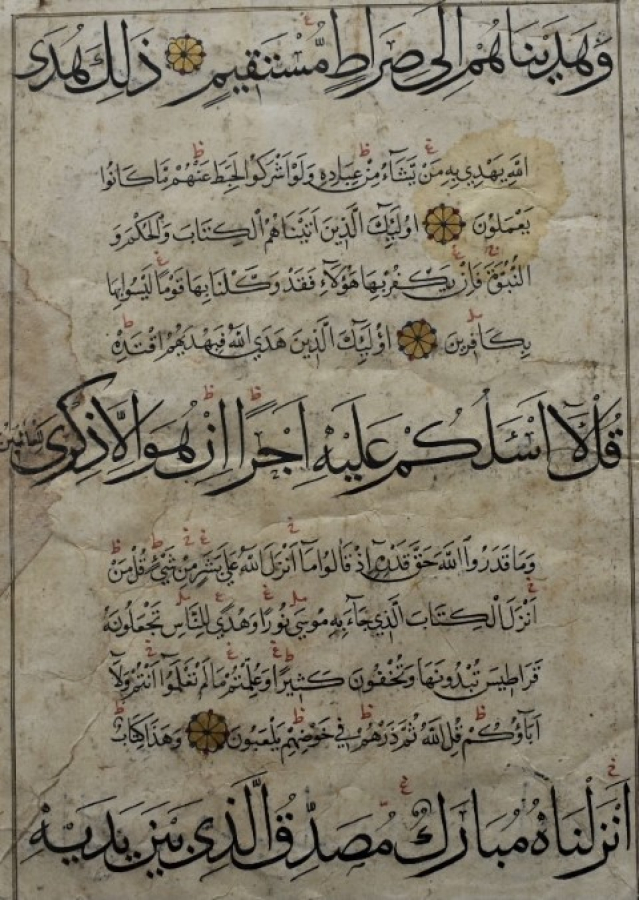 وَهَدَيْنَاهُمْ إِلَى صِرَاطٍ مُّسْتَقِيمٍ ذَلِكَ هُدَى
اللَّهِ يَهْدِي بِهِ مَنْ يَشَاءُ مِنْ عِبَادِهِ وَلَوْ أَشْرَكُوا لَحَبِطَ عَنْهُمْ مَا كَانُوا
يَعْمَلُونَ اُولَئِكَ الَّذِينَ اٰتَيْنَاهُمُ الْكِتَابَ وَالْحُكْمَ وَ
النُّبُوَّةَ فَإِنْ يَكْفُرْ بِهَا هَؤُلَاءِ فَقَدْ وَكَّلْنَا بِهَا قَوْمًا لَيْسُوا بِهَا
بِكَافِرِينَ اُولَئِكَ الَّذِينَ هَدَى اللَّهُ فَبِهُدَيهُمُ اقْتَدِهْ
قُلْ لَا اَسْئَلُكُمْ عَلَيْهِ اَجْرًا اِنْ هُوَ اِلَّا ذِكْرَى للعالمين
وَمَا قَدَرُوا اللَّهَ حَقَّ قَدْرِهِ اِذْ قَالُوا مَا اَنْزَلَ اللَّهُ عَلَى بَشَرٍ مِنْ شَيْءٍ قُلْ مَنْ
اَنْزَلَ الْكِتَابَ الَّذِي جَاءَ بِهِ مُوسَى نُورًا وَهُدًى لِلنَّاسِ تَجْعَلُونَهُ
قَرَاطِيسَ تُبْدُونَهَا وَتُخْفُونَ كَثِيرًا وَعُلِّمْتُمْ مَا لَمْ تَعْلَمُوا اَنْتُمْ وَلَا
اٰبَاؤُكُمْ قُلِ اللَّهُ ثُمَّ ذَرْهُمْ فِي خَوْضِهِمْ يَلْعَبُونَ وَهَذَا كِتَابٌ
اَنْزَلْنَاهُ مُبَارَكٌ مُصَدِّقُ الَّذِي بَيْنَ يَدَيْهِ